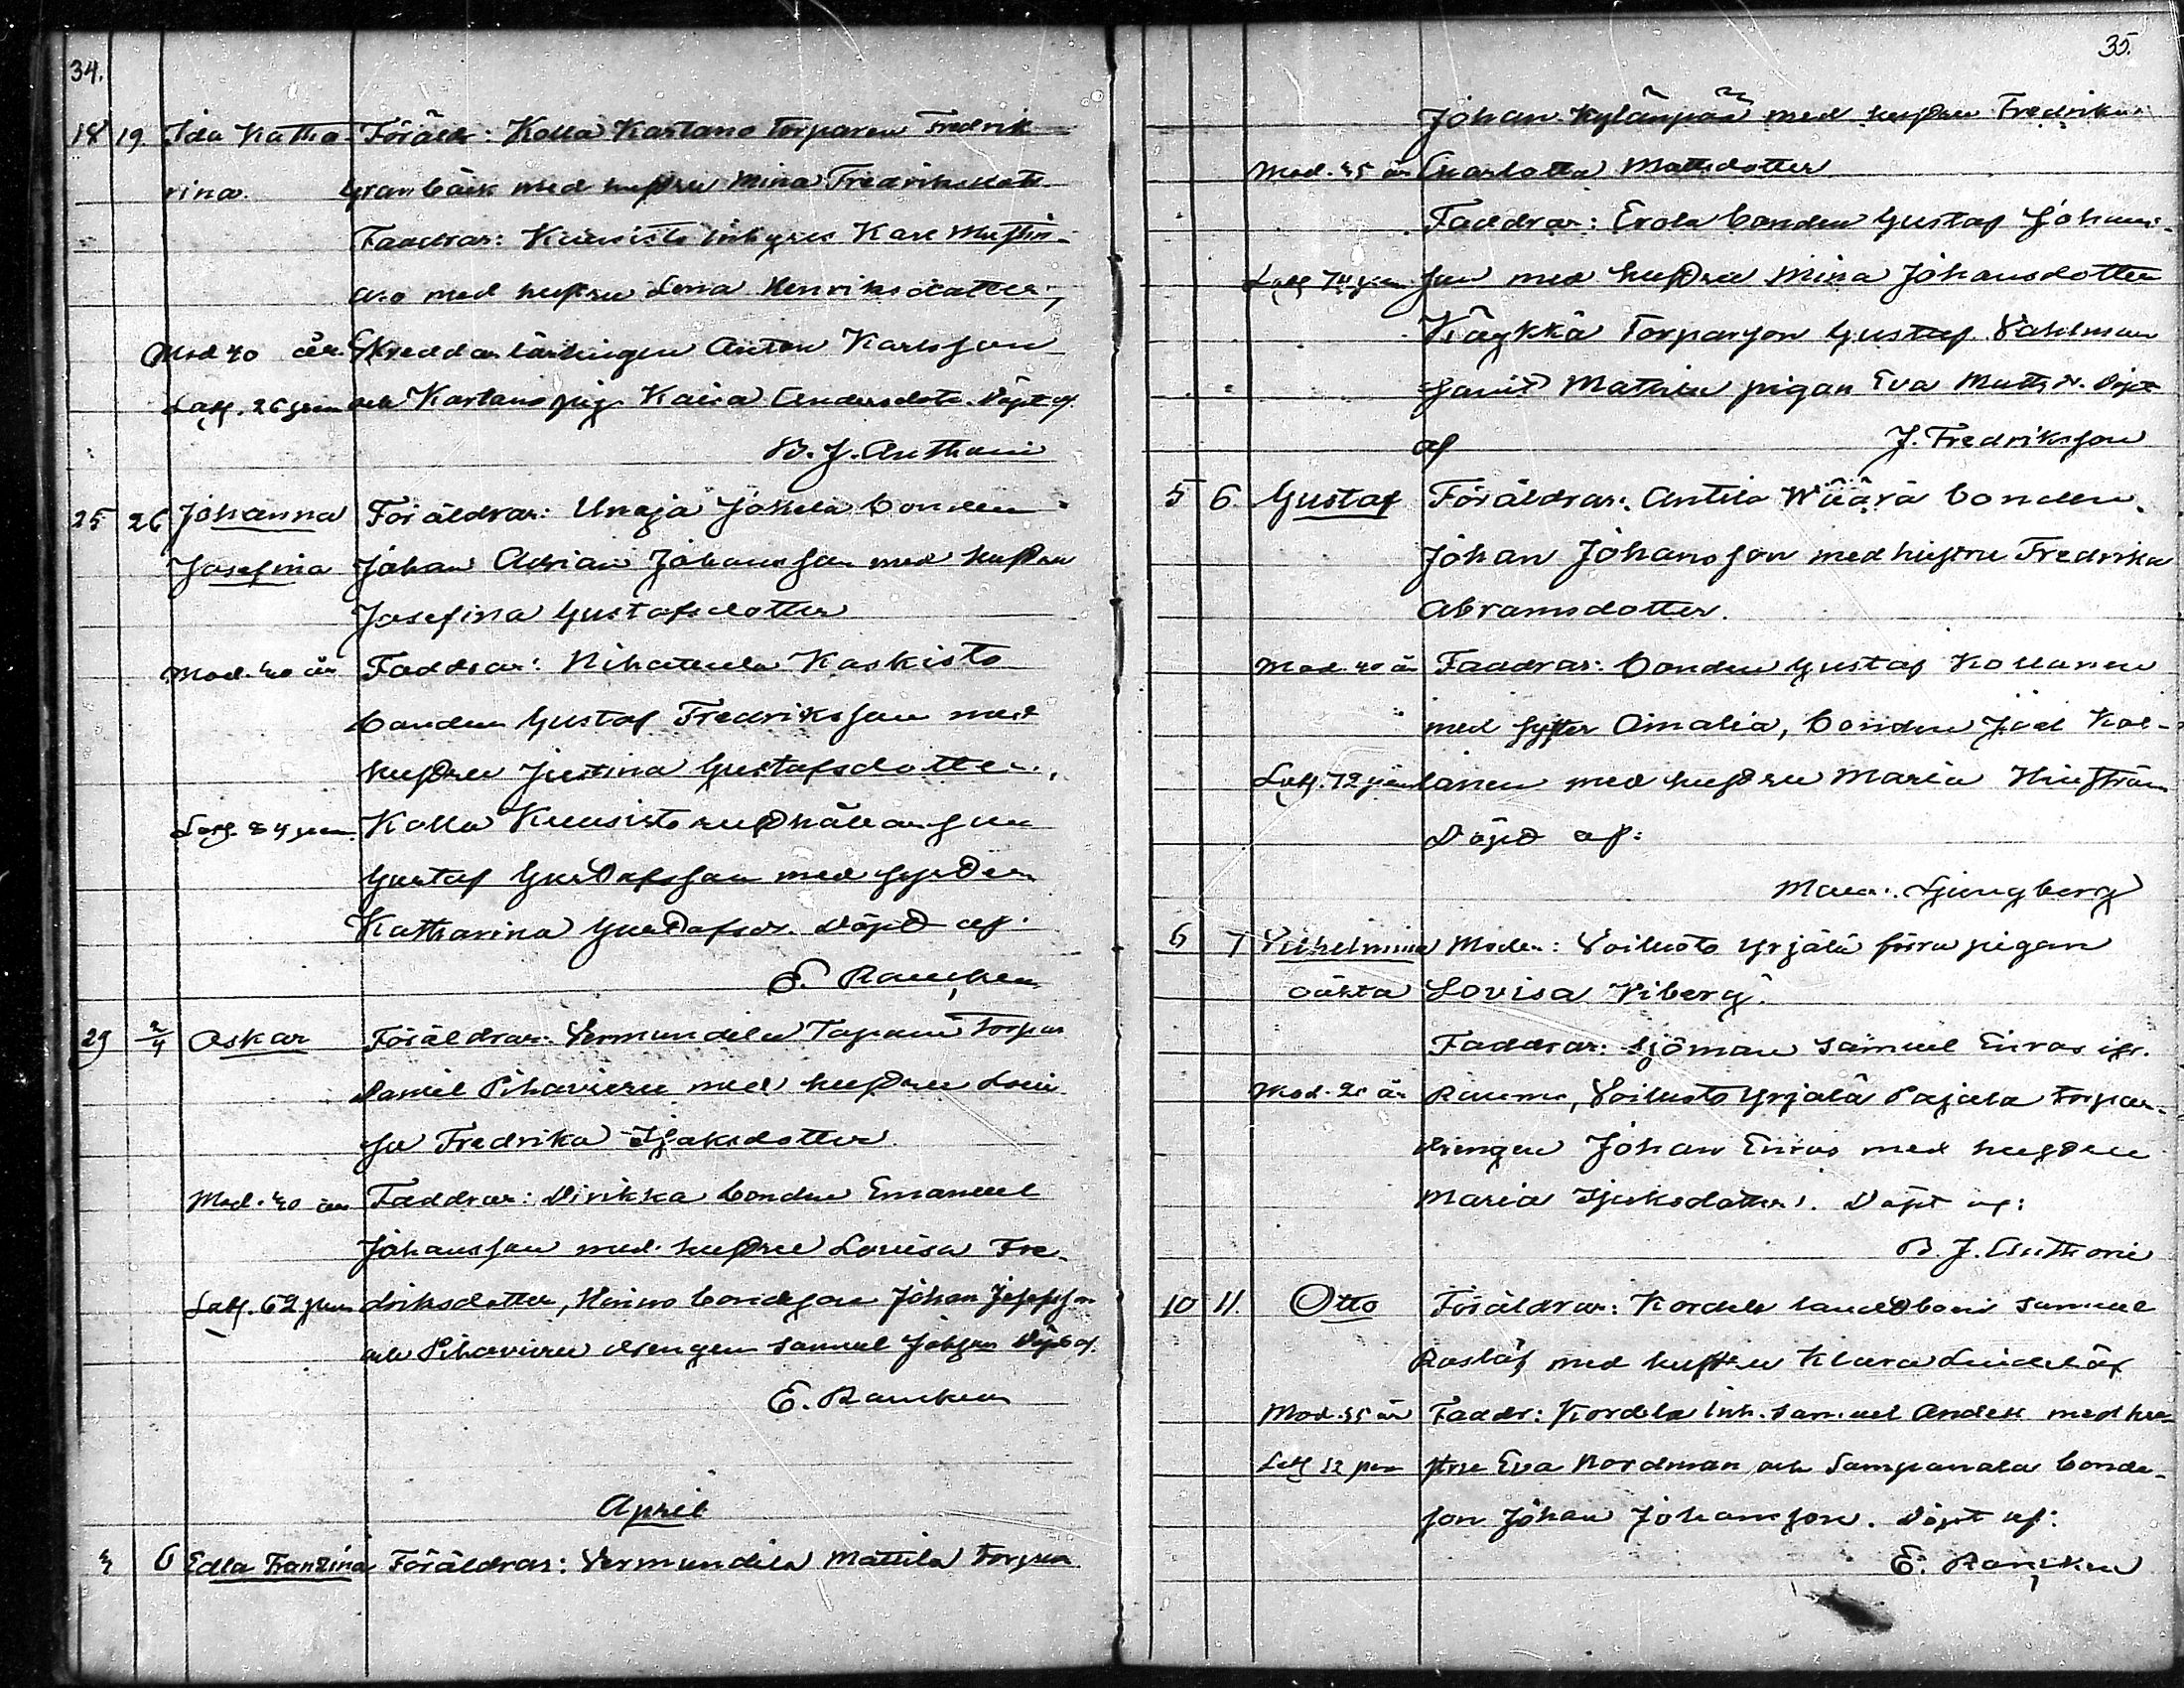 34.
18 19. Ida Katha- Föräldr: Kolla Kartano Torparen Fredrik
rina. Granbäck med hustru Mina Fredriksdott
Faddrar: Kuusisto inhyses Karl
aro med hustru Lena Henriksdotter,
Mod 40 år. Skreddarlärlingen Anton Karlsson
26 och Kartano pig. Kaisa Andersdott. Döpt af
B. J. Anthoni
25 26 Johanna Föräldrar: Unaja Jokela bonden
Josefina Johan Adrian Johansson med hustru
Josefina Gustafsdotter
Mod. 40 år Faddrar: Nihattula Kaskisto
bonden Gustaf Fredriksson med
hustru Justina Gustafsdotter,
84 Kolla Kuusisto
Gustaf Gustafsson med syster
Katharina Gustafsdr. Döpt af.
E. Rancken
29 2/4 Oskar Föräldrar: Vermundila Tapani Torpar
Daniel Pihavieru med hustru Lovi
sa Fredrika Isaksdotter
Mod. 40 år Faddrar: Dirikka bonden Emanuel
Johansson med hustru Lovisa Fre-
62 driksdotter, Heino bondeson Johan Josefsson
och Pihavieru drengen Samuel Johsson Döpt af.
E. Rancken
April
6 Edla Frantzina Föräldrar: Vermundila Mattila Torpar
35.
Johan Kylänpää med hustru Fredrika
Mod. 35 år Charlotta Mattsdotter
Faddrar: Erola bonden Gustaf Johans-
74 son med hustru Mina Johansdotter
Torparson Gustaf Dahlman
samt Mathila pigan Eva Matts dr. Döpt
af J. Fredriksson
5 6. Gustaf Föräldrar: Antila Wäärä bonden
Johan Johansson med hustru Fredrika
Abramsdotter.
Mod. 40 år Faddrar: bonden Gustaf Kollanen
med syster Amalia, bonden Joel Kol-
72 lanen med hustru Maria
Döpt af:
Ljungberg
6 7 Vilhelmina Moder: Voiluoto Yrjälä förra pigan
oäkta Lovisa Viberg.
Faddrar: Sjöman Samuel Enros ifr.
Mod. 21 år Raumo, Voiluoto Yrjälä Pajala Torpar-
drengen Johan Enros med hustru
Maria Isaksdotter. Döpt af:
B. J. Anthoni
10 11. Otto Föräldrar: Kordela landtboni Samuel
Roslöf med hustru Klara Lindelöf
Mod. 35 år Faddr: Kordela inh. Samuel Andell med hu-
12 stru Eva Nordman och Sampanala bonde-
son Johan Johansson. Döpt af:
E. Rancken